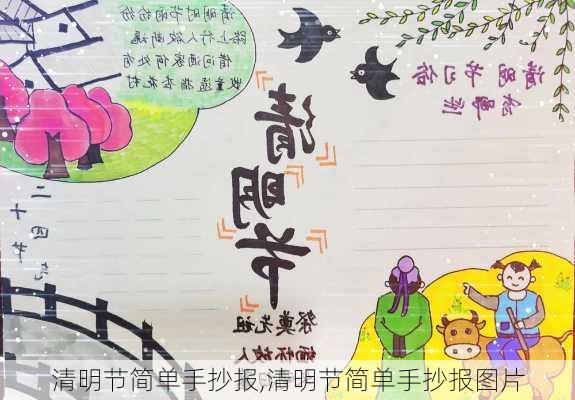 清明时节雨纷纷
路上行人欲断魂
借问酒家何处有
牧童遥指杏花村
清明节
清明节习俗
二十四节气
祭奠先祖
缅怀故人
清明节简单手抄报,清明节简单手抄报图片